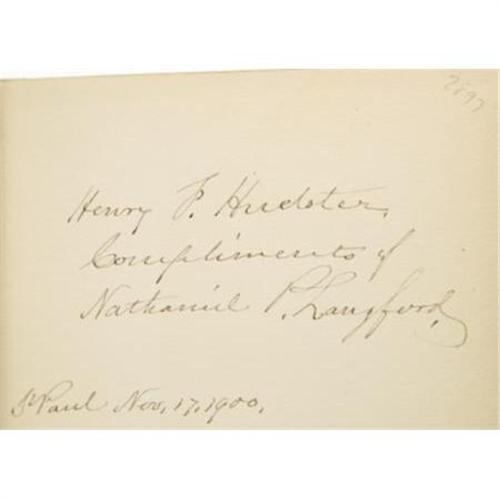 Henry F.
Compliments of
Nathaniel P. Langford,
St Paul Nov. 17, 1900.